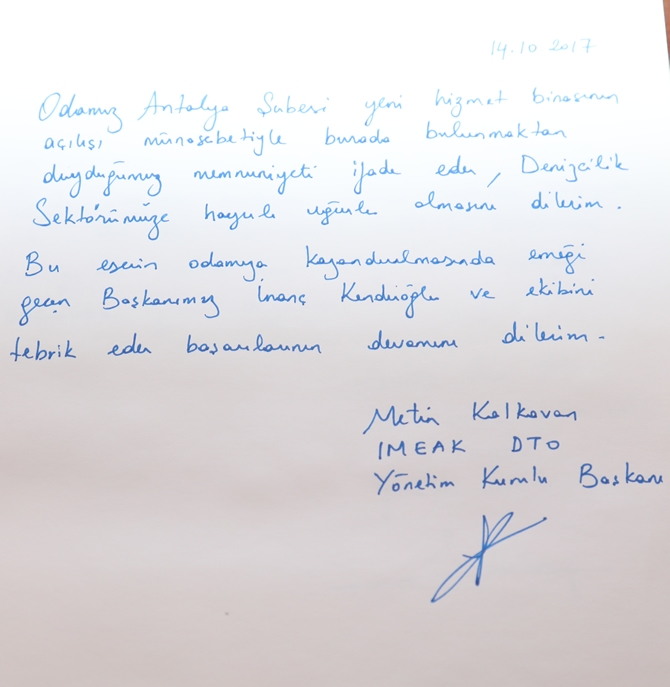 14.10 2017
Odamız Antalya Şubesi yeni hizmet binasının
açılışı münasebetiyle burada bulunmaktan
duyduğumuz memnuniyeti ifade eder, Denizcilik
Sektörümüze hayırlı uğurlu olmasını dilerim.
Bu eserin odamıza kazandırılmasında emeği
geçen Başkanımız İnanç Kendiroğlu ve ekibini
tebrik eder başarılarının devamını dilerim.
Metin Kalkavan
IMEAK DTO
Yönetim Kurulu Başkanı